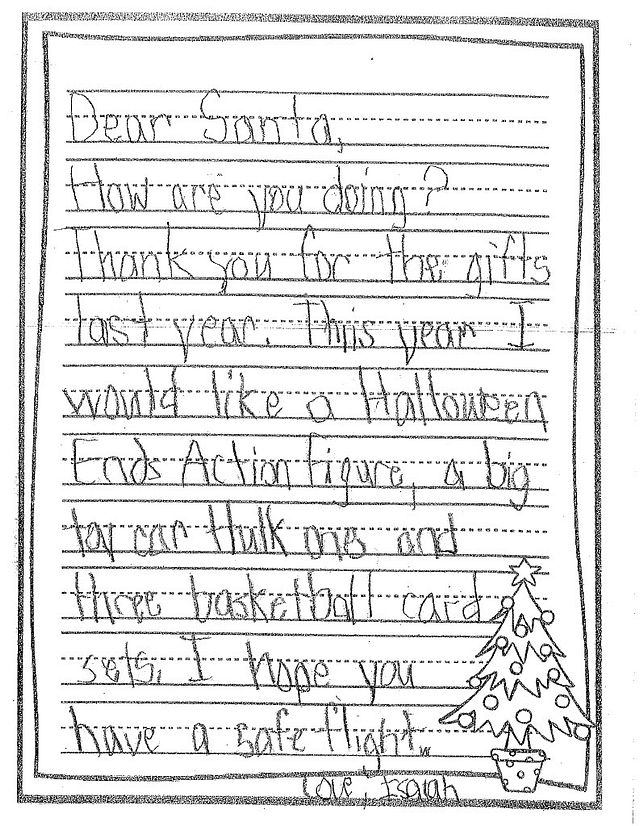 Dear Santa,
How are you doing?
Thank you for the gifts
last year. This year I
would like a Halloween
Ends Action Figure, a big
toy car Hulk ones and
three basketball card
sets. I hope you
have a safe flight.
Love, Isaiah